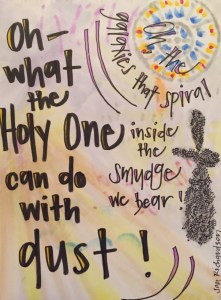 Oh, the
galaxies that spiral
inside
the
smudge
we bear!
Oh-
what
the
Holy One
can do
with
dust!
Jan Richardson